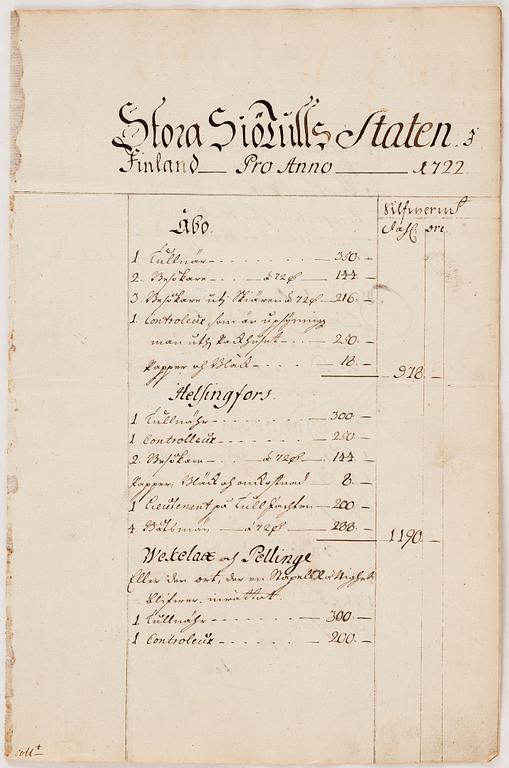 Stora SiöTulls Staten i
Finland Pro Anno 1722
Silfwermt
dahlr öre
Åbo
1 Tullnär 350
2 Besökare à 72 144
3 Besökare uti Skiären à 72 216
1 Controleur, som är upsynings
man uti Packhuset 250
Papper och Bläck 18 978
Helsingfors
1 Tullnähr 300
1 Controlleur 250
2 Besökare à 72 144
Papper, Bläck och omkostnad 8
1 Lieutenant på Tull Jachten 200
4 Båtsmän à 72 288 1190
Wekelax och Pellinge
Eller den ort, der en Stapelrättighet
blifwer inrättat
1 Tullnähr 300
1 Controleur 200
collt